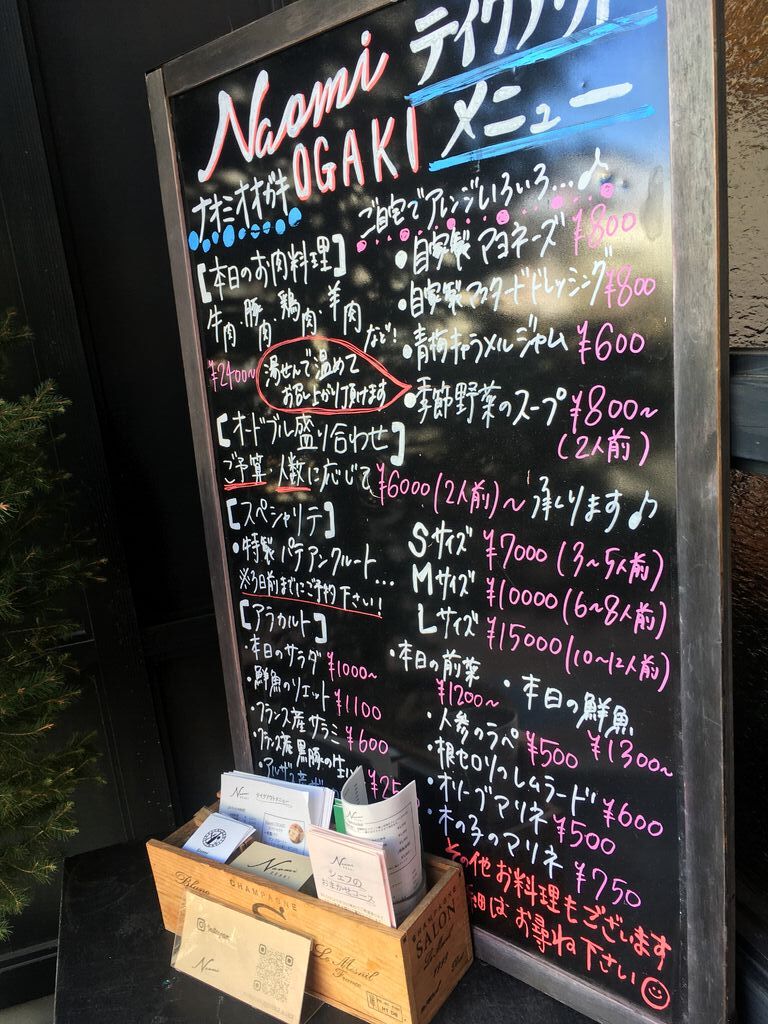 Naomi OGAKI
テイクアウト
メニュー
ナオミオオガキ
ご自宅でアレンジいろいろ…♪
・自家製マヨネーズ ¥800
・自家製マスタードドレッシング ¥800
・青梅キャラメルジャム ¥600
・季節野菜のスープ ¥800〜
(2人前)
[本日のお肉料理]
牛肉、豚肉、鶏肉、羊肉
など!
¥2400〜
湯せんで温めて
お召し上がり頂けます
[オードブル盛り合わせ]
ご予算・人数に応じて ¥6000(2人前)〜承ります♪
[スペシャリテ]
・特製パテアンクルート…
※3日前までにご予約下さい!
Sサイズ ¥7000(3〜5人前)
Mサイズ ¥10000(6〜8人前)
Lサイズ ¥15000(10〜12人前)
[アラカルト]
・本日のサラダ ¥1000〜
・鮮魚のリエット ¥1100
・フランス産サラミ ¥600
・フランス産黒豚の生
・アルザス産
¥25
・本日の前菜
¥1200〜
・本日の鮮魚
¥1300〜
・人参のラペ ¥500
・根セロリのレムラード ¥600
・オリーブマリネ ¥500
・木の子のマリネ ¥750
その他お料理もございます
細はお尋ね下さい
テイクアウトメニュー
Naomi
OGAKI
Naomi
シェフの
おまかせコース
CHAMPAGNE
SALON
Le Mesnil
France
Instagram
Naomi